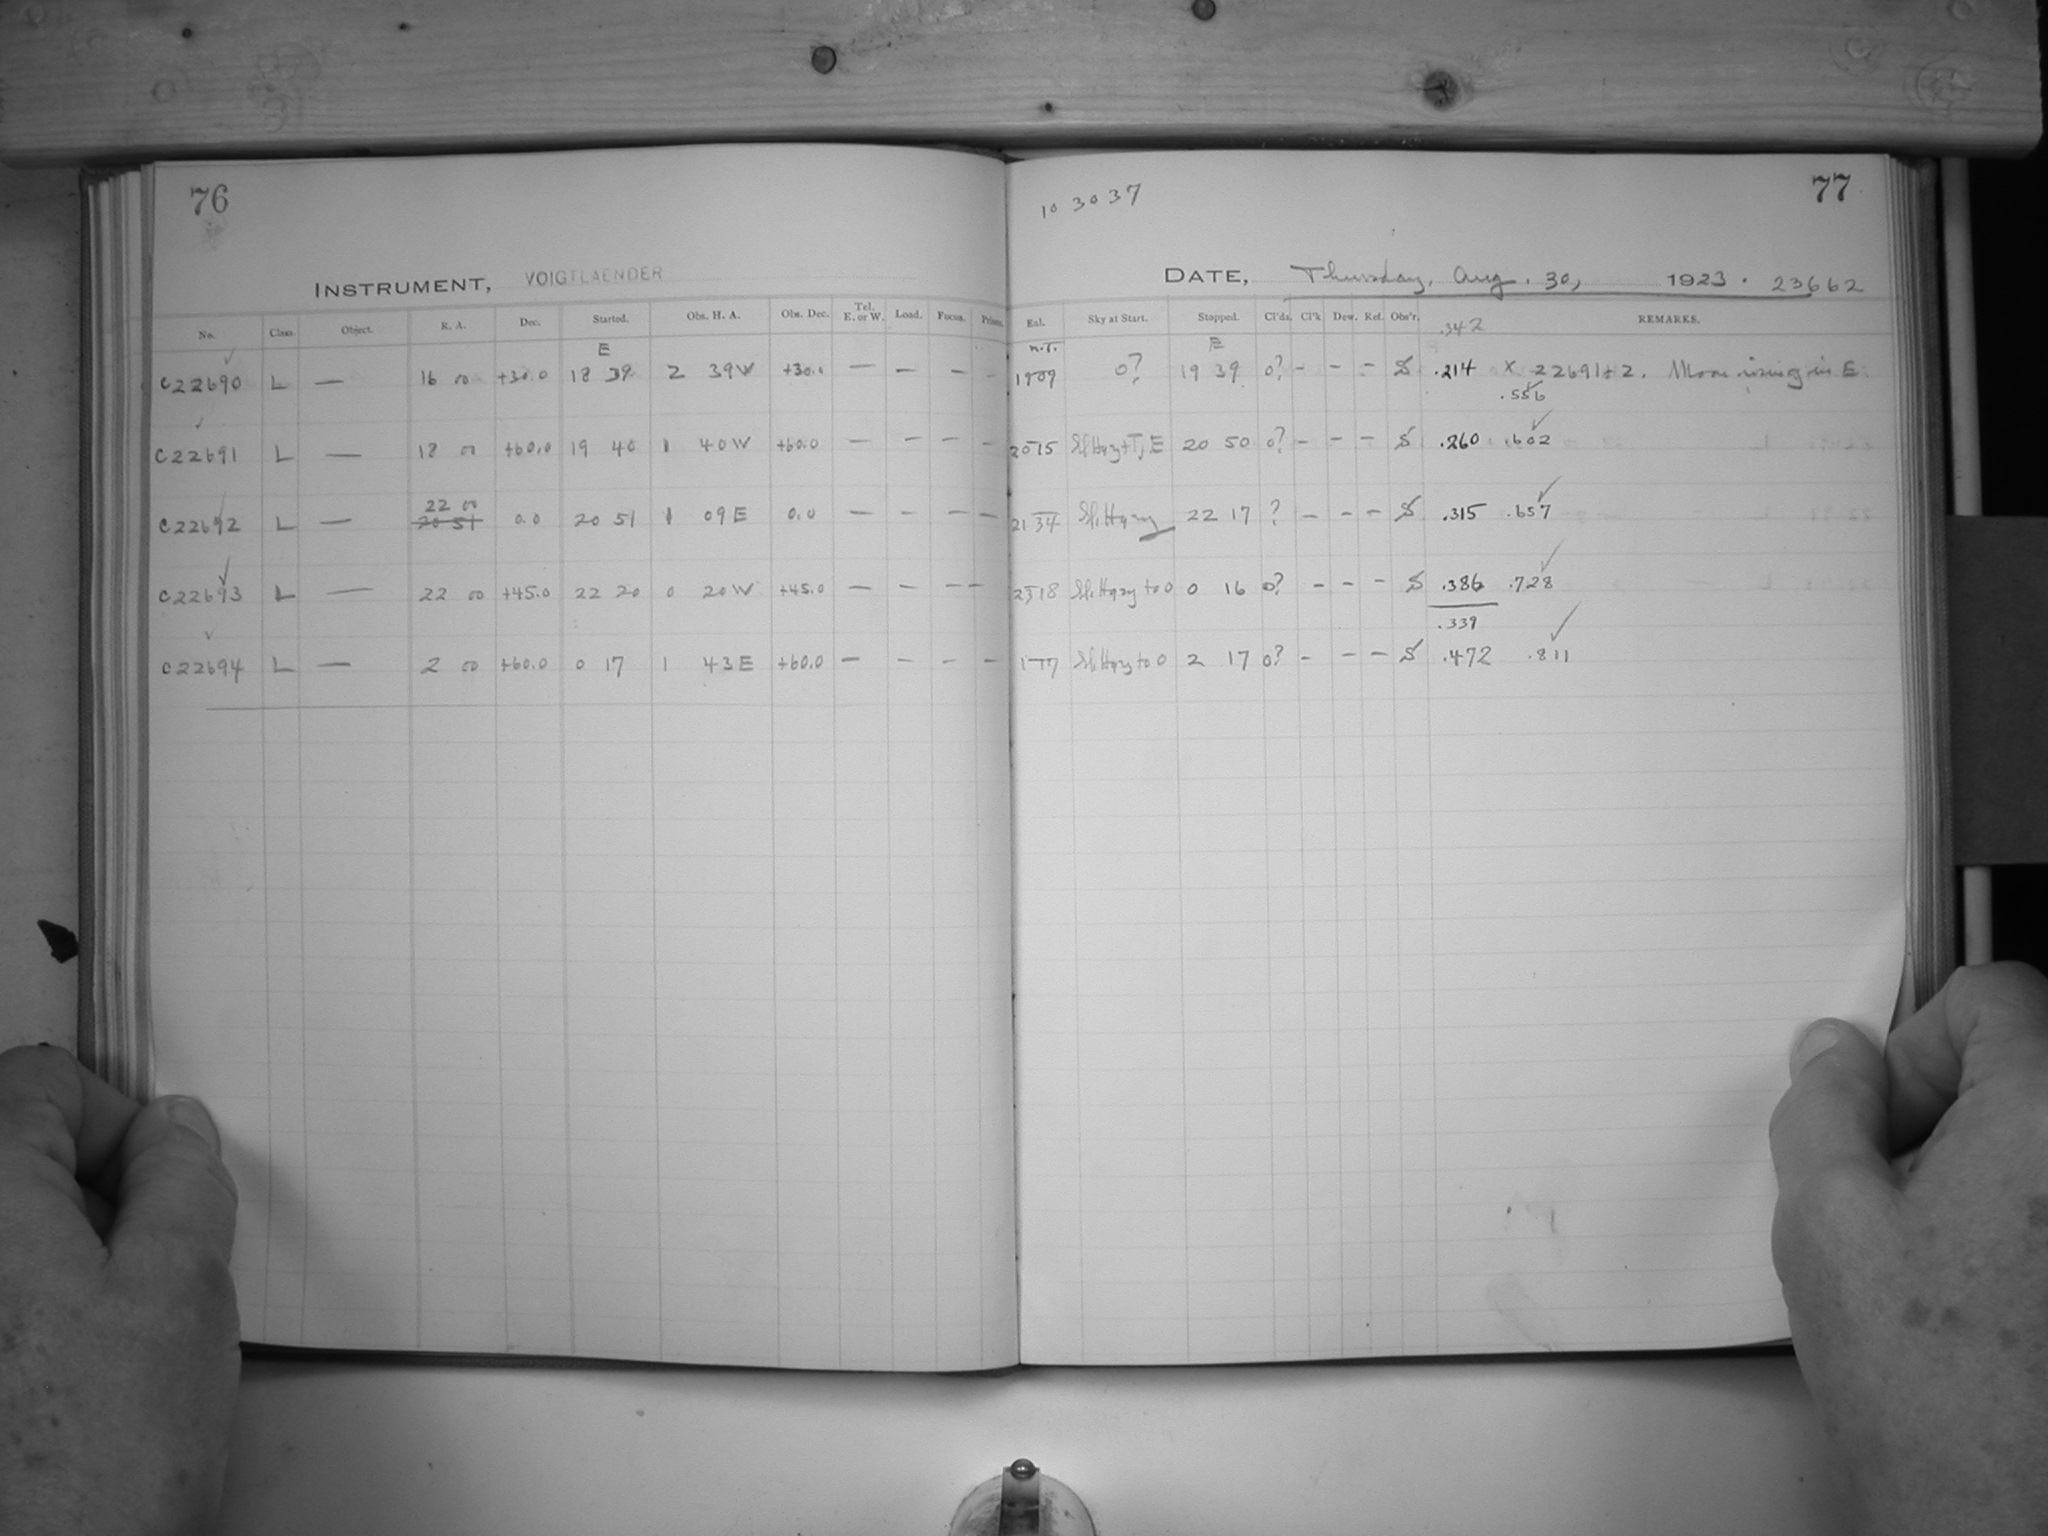 76
INSTRUMENT, VOIGTLAENDER
No. Class. Object. R. A. Dec. Started. Obs. H. A. Obs. Dec. Tel. E. or W. Load. Focus. Prisms.
E
C22690 L — 16 00 +30.0 18 39 2 39W +30.0 — — — —
C22691 L — 18 00 +60.0 19 40 1 40W +60.0 — — — —
22 00
C22692 L — 20 51 0.0 20 51 1 09E 0.0 — — — —
C22693 L — 22 00 +45.0 22 20 0 20W +45.0 — — — —
C22694 L — 2 00 +60.0 0 17 1 43E +60.0 — — — —
10 30 37
77
DATE, Thursday, Aug. 30, 1923. 23662
Sky at Start. Stopped. Cl'ds. Cl'k Dew. Ref. Obs'r. .342 REMARKS.
E
1909 0? 19 39 0? - - - S .214 X 22691+2. Moon rising in E.
.556
2015 20 50 0? - - - S .260 .602
2134 Sl. Hazy 22 17 ? - - - S .315 .657
2318 Sl. Hazy to 0 0 16 0? - - - S .386 .728
.339
117 Sl. Hazy to 0 2 17 0? - - - S .472 .811